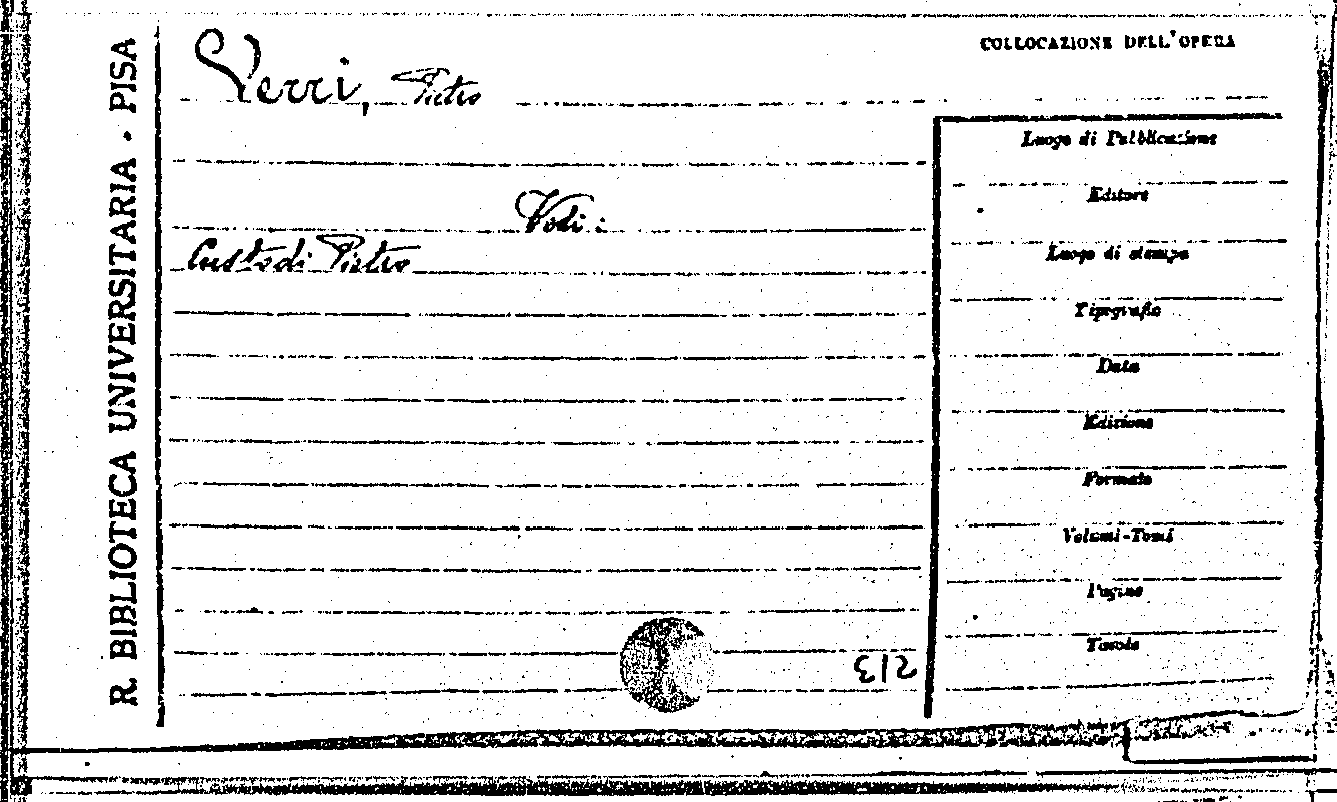 R. BIBLIOTECA UNIVERSITARIA - PISA
COLLOCAZIONE DELL'OPERA
Verri, Pietro
Vedi:
Custodi Pietro
Luogo di Pubblicazione
Editore
Luogo di stampa
Tipografia
Data
Edizione
Formato
Volumi-Tomi
Pagine
Tavole